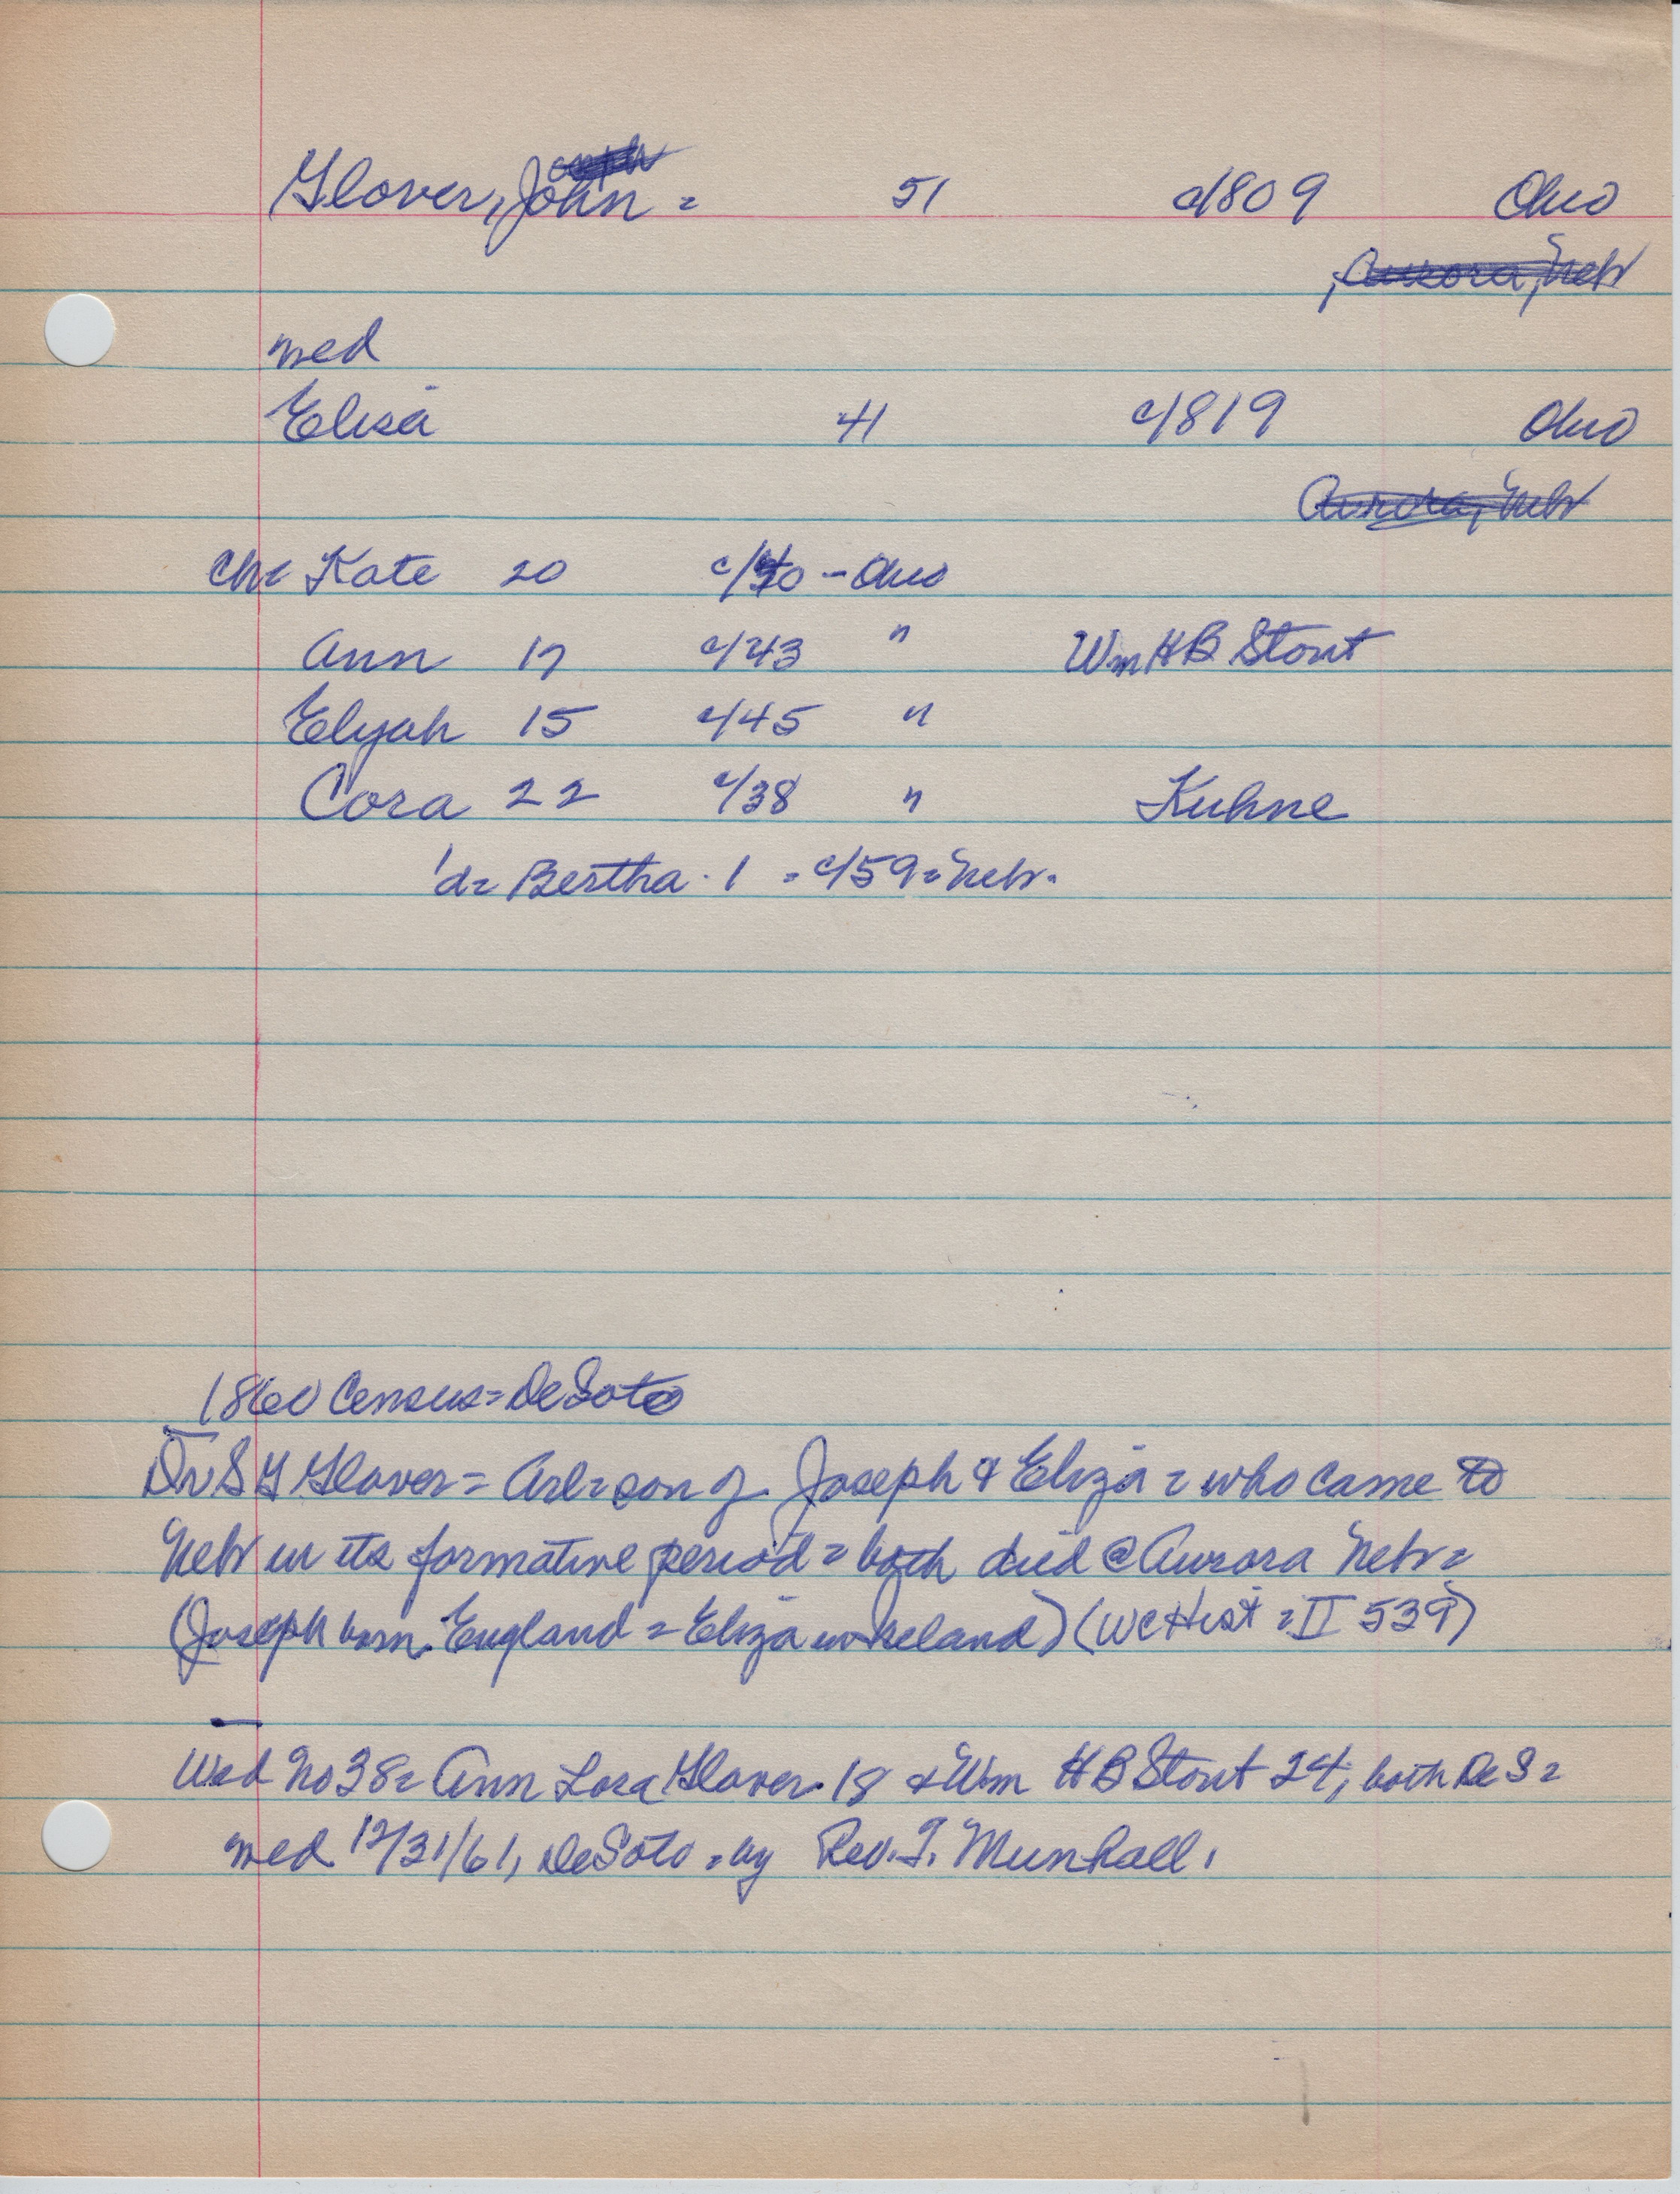 Glover, John = 51 c1809 Ohio
, Aurora, Nebr
med
Elisa 41 c1819 Ohio
Aurora, Nebr
Ch= Kate 20 c/40 - Ohio
Ann 17 c/43 " Wm H B Stout
Elijah 15 c/45 "
Cora 22 c/38 " Kuhne
d= Bertha . 1 = c/59 = Nebr.
1860 Census = DeSoto
Dr S G Glover = Arl = son of Joseph & Eliza = who came to
Nebr in its formative period = both died @ Aurora Nebr =
(Joseph born England = Eliza in Ireland) (WC Hist = II 539)
Wed No 38 = Ann Lora Glover 18 & Wm H B Stout 24, both De S =
med 12/31/61, DeSoto = by Rev. T. Munhall.